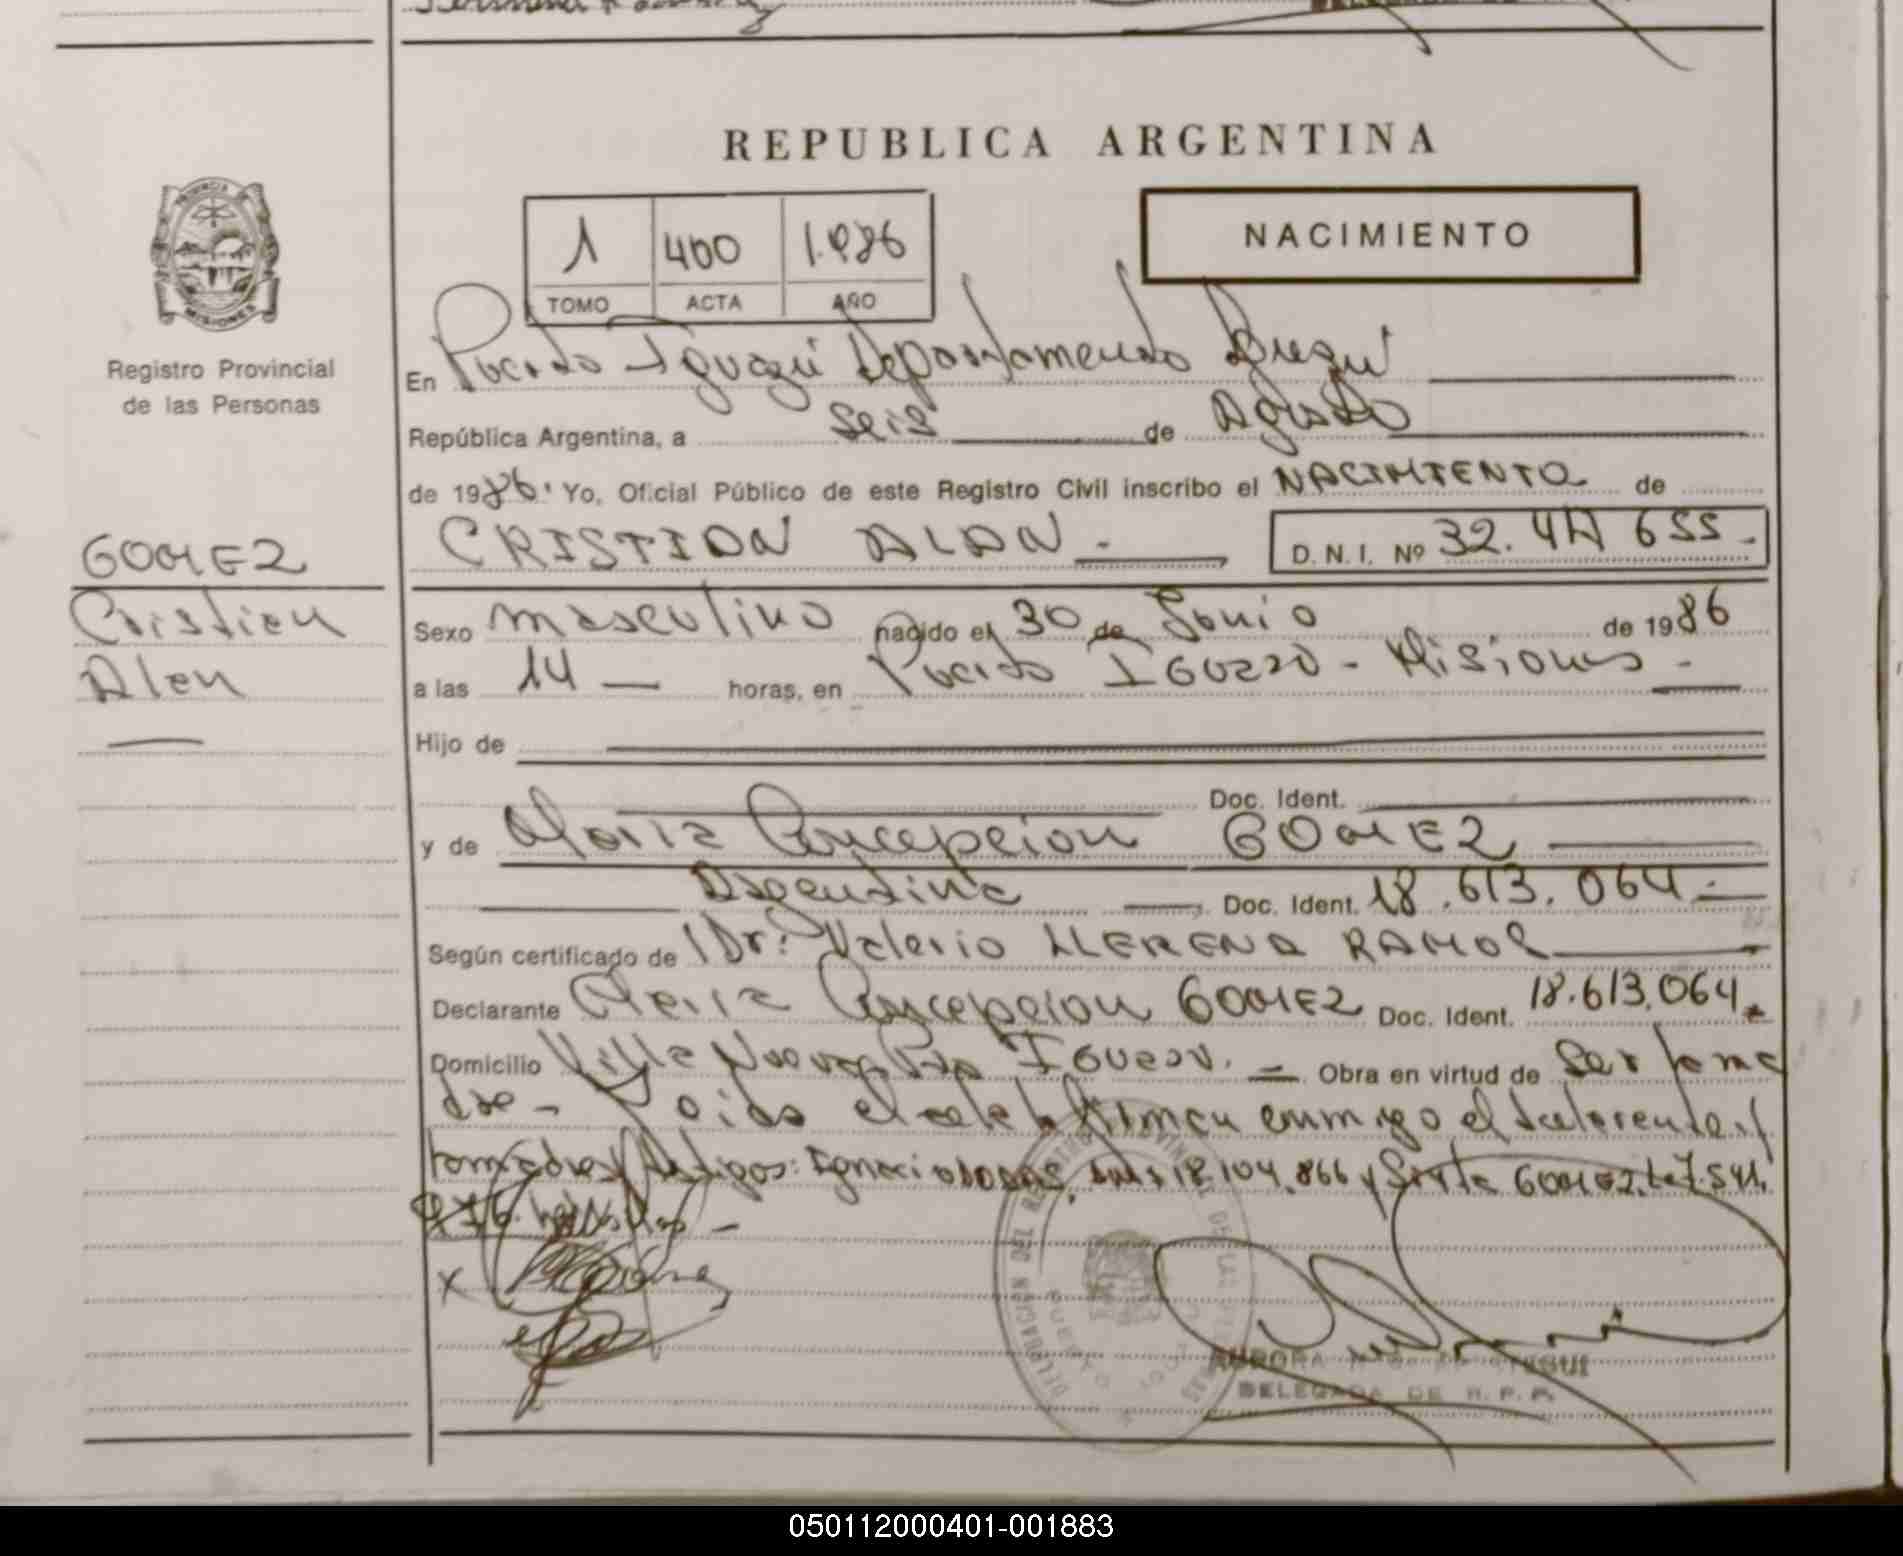 REPUBLICA ARGENTINA
1 400 1.986
TOMO ACTA AÑO
NACIMIENTO
PROVINCIA DE MISIONES
Registro Provincial
de las Personas
En Puerto Iguazú Departamento Iguazú
República Argentina, a seis de Agosto
de 1986. Yo, Oficial Público de este Registro Civil inscribo el NACIMIENTO de
CRISTIAN ALAN.- D.N.I. Nº 32. 655.-
GOMEZ
Cristian
Alan
Sexo masculino nacido el 30 de Junio de 1986
a las 14 horas, en Puerto IGUAZU - Misiones -
Hijo de
Doc. Ident.
y de Maria Concepcion GOMEZ
Argentina Doc. Ident. 18.613.064.-
Según certificado de Dr. Valerio LLERENA RAMOS
Declarante Maria Concepcion GOMEZ Doc. Ident. 18.613.064.
Domicilio Villa Nueva Pto IGUAZU. Obra en virtud de ser la ma
dre - Leida el acta la firman conmigo el declarante y
los testigos: Ignacio 18.104.866 y GOMEZ 7.541.
976
X
DELEGACION DEL REGISTRO PROVINCIAL DE LAS PERSONAS
PUERTO IGUAZU
AURORA
DELEGADA DE R. P. P.
050112000401-001883